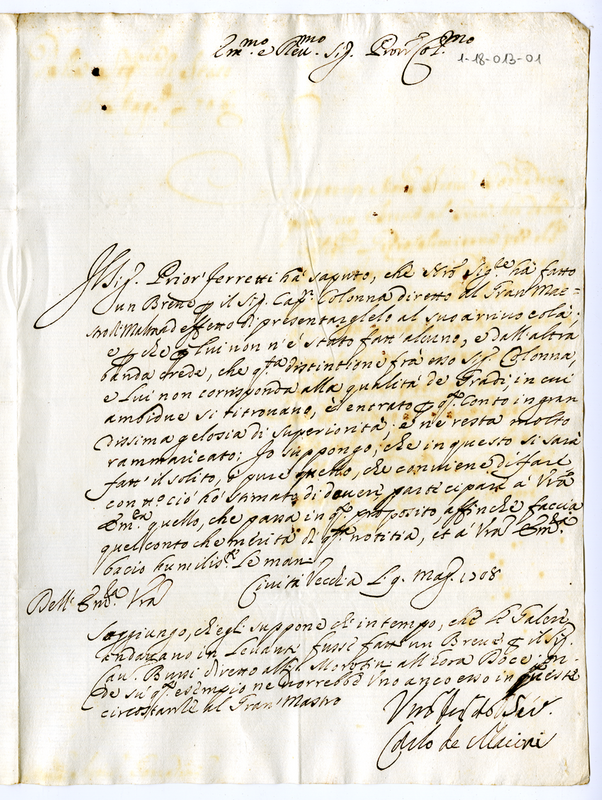 Em.mo e Reu.mo Sig. Pron Col.mo
1-18-013-01
Il Sig. Prior' Ferretti hà saputo, che Nro Sig.re hà fatto
un Breue p il Sig. Cap. Colonna diretto al Gran' Mae=
stro di Malta ad effetto di presentarglelo al suo arriuo colà;
e che p Lui non n'è stato fatt' alcuno, e dall'altra
banda crede, che q.ta distintione frà esso Sig. Colonna,
e Lui non corrisponda alla qualità de Gradi, in cui
ambidue si ritrouano, è entrato p q.to Conto in gran
dissima gelosia di superiorità, e ne resta molto
rammaricato; Io suppongo, che in questo si sarà
fatt' il solito, ò pure quello, che conuiene di fare
con tt.o ciò hò stimato di douere participare à Vra
Em.za quello, che passa in q.to proposito affinche faccia
quel conto che merita di q.ta notitia, et à Vra Em.za
bacio humiliss.te Le mani
Ciuità Vecchia Li 9. Mag. 1708
Dell' Em.za Vra
Soggiungo, ch'egli suppone ch'in tempo, che le Galere
andauano in Leuante fusse fatt' un Breue p il Sig.
Cau. Bussi diretto alli Morosini all'hora Doce; on
de su q.to esempio ne vorrebbe uno anco esso in queste
circostanze al Gran' Mastro
Carlo de Marini